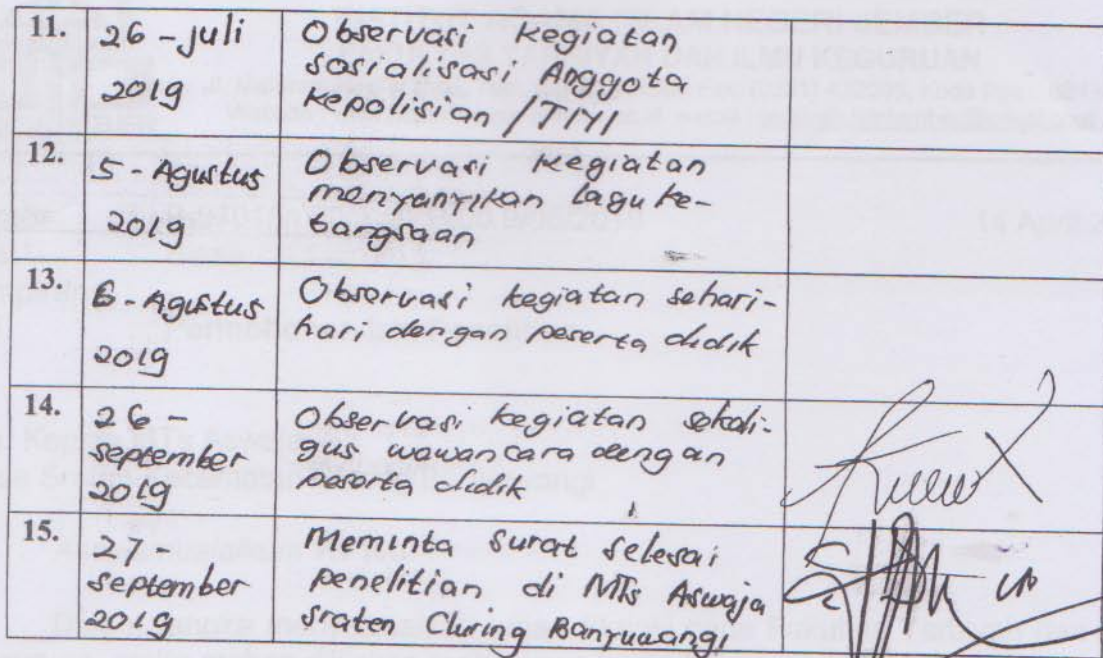 11. 26 - juli 2019 Observasi kegiatan
sosialisasi Anggota
kepolisian / TNI
12. 5 - Agustus 2019 Observasi kegiatan
menyanyikan lagu ke-
bangsaan
13. 6 - Agustus 2019 Observasi kegiatan sehari-
hari dengan peserta didik
14. 26 - september 2019 Observasi kegiatan sekali-
gus wawancara dengan
peserta didik
15. 27 september 2019 Meminta surat selesai
penelitian di MTs Aswaja
sraten Cluring Banyuwangi